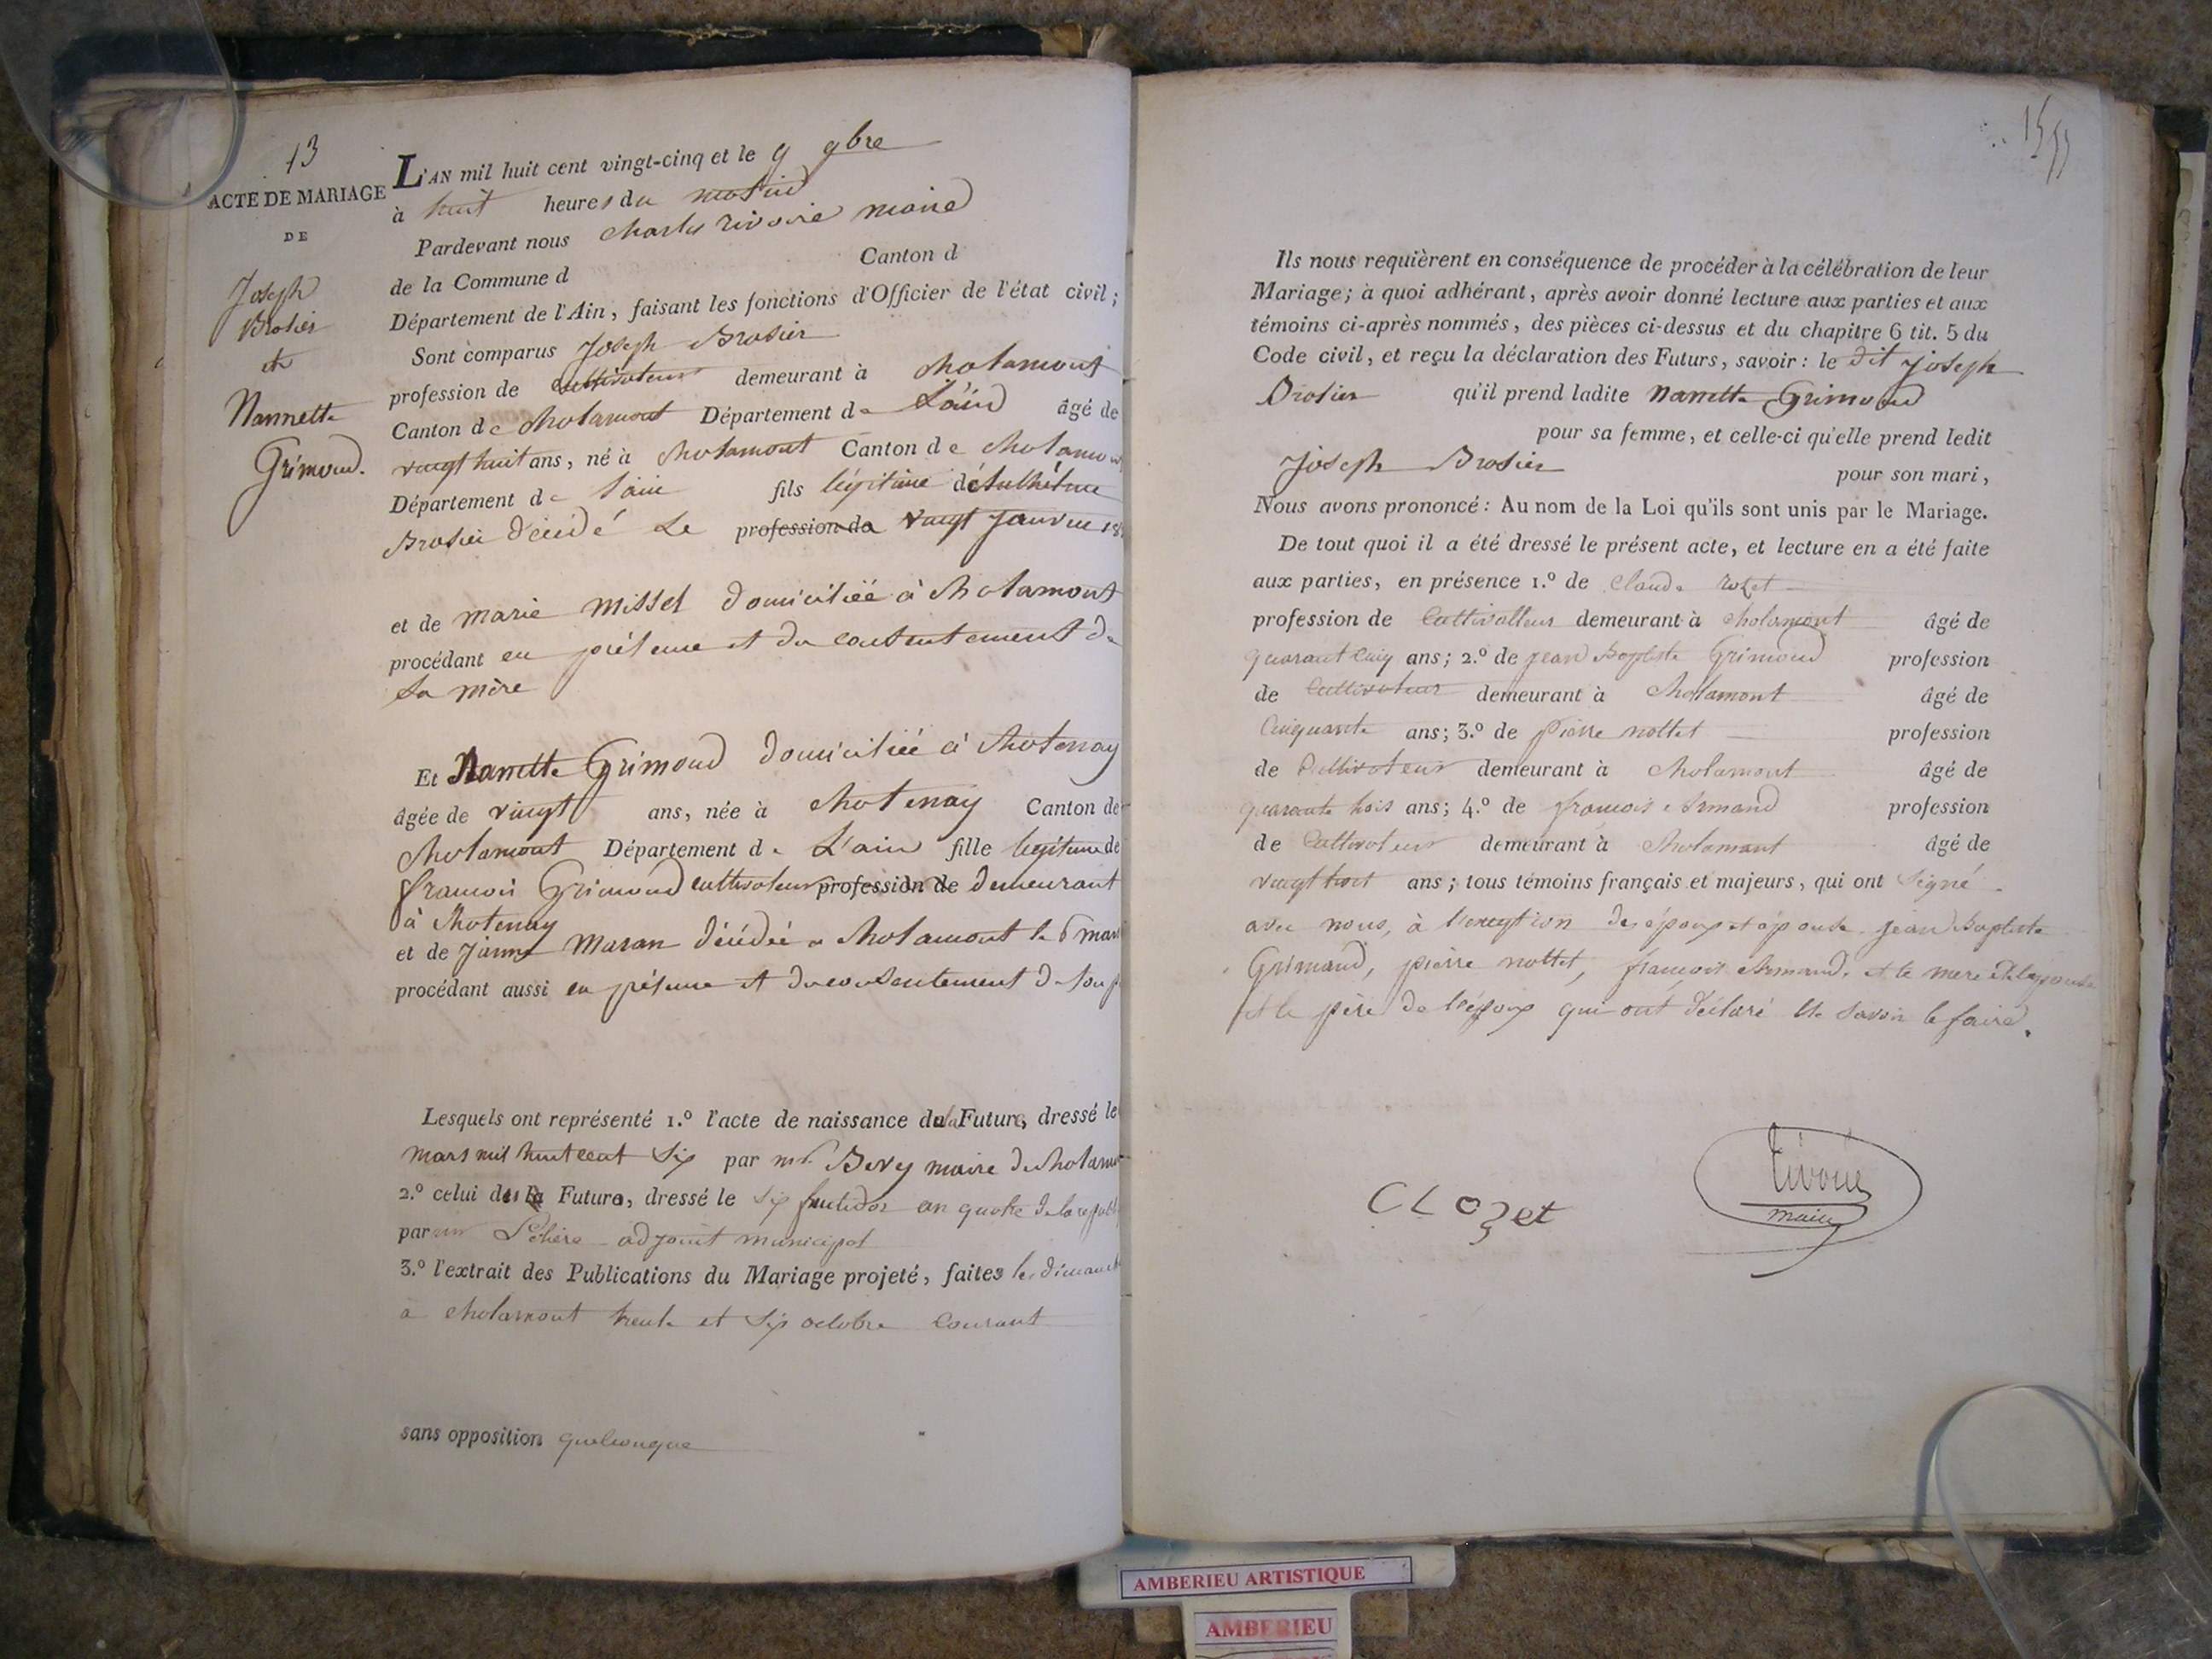 13
ACTE DE MARIAGE
DE
Joseph
Brosier
et
Nannette
Grimoud.
L'AN mil huit cent vingt-cinq et le 9 9bre
à huit heures du matin
Pardevant nous Charles rivoire maire
de la Commune d Canton d
Département de l'Ain, faisant les fonctions d'Officier de l'état civil;
Sont comparus Joseph Brosier
profession de cultivateur demeurant à Chalamont
Canton de Chalamont Département de L'ain âgé de
vingt huit ans, né à Chalamont Canton de Chalamont
Département de l'ain fils légitime de
Brosier décédé Le profession de vingt Janvier
et de marie Missel domiciliée à Chalamont
procédant en présence et du consentement de
sa mère
Et Nanette Grimoud domiciliée à Chatenay
âgée de vingt ans, née à Chatenay Canton de
Chalamont Département de L'ain fille légitime de
francois Grimoud cultivateur profession de demeurant
à Chatenay
et de Janne Maran décédée a Chalamont le 6 mars
procédant aussi en présence et du consentement de son
Lesquels ont représenté 1.º l'acte de naissance de la Future, dressé le
mars mil huit cent Six par mr. Bevy maire de Chalamont
2.º celui des Future, dressé le six fructidor an quatre de la
par mr adjoint municipal
3.º l'extrait des Publications du Mariage projeté, faites les dimanche
a Chalamont trente et Six octobre Courant
sans opposition quelconque
15
Ils nous requièrent en conséquence de procéder à la célébration de leur
Mariage; à quoi adhérant, après avoir donné lecture aux parties et aux
témoins ci-après nommés, des pièces ci-dessus et du chapitre 6 tit. 5 du
Code civil, et reçu la déclaration des Futurs, savoir: le dit Joseph
Brosier qu'il prend ladite Nanette Grimoud
pour sa femme, et celle-ci qu'elle prend ledit
Joseph Brosier pour son mari,
Nous avons prononcé: Au nom de la Loi qu'ils sont unis par le Mariage.
De tout quoi il a été dressé le présent acte, et lecture en a été faite
aux parties, en présence 1.º de Claude rozet
profession de Cultivatteur demeurant à Chalamont âgé de
quarant Cinq ans; 2.º de jean Baptiste Grimoud profession
de Cultivateur demeurant à Chalamont âgé de
Cinquante ans; 3.º de pierre nottet profession
de Cultivateur demeurant à Chalamont âgé de
quarante trois ans; 4.º de francois Armand profession
de Cultivateur demeurant à Chalamont âgé de
vingt huit ans; tous témoins français et majeurs, qui ont signé
avec nous, à l'exception des époux et épouse jean Baptiste
Grimaud, pierre nottet, francois Armand, et la mere de l'epouse
et le père de l'époux qui ont déclaré ne savoir le faire.
CLozet
rivoire
maire
AMBERIEU ARTISTIQUE
AMBERIEU